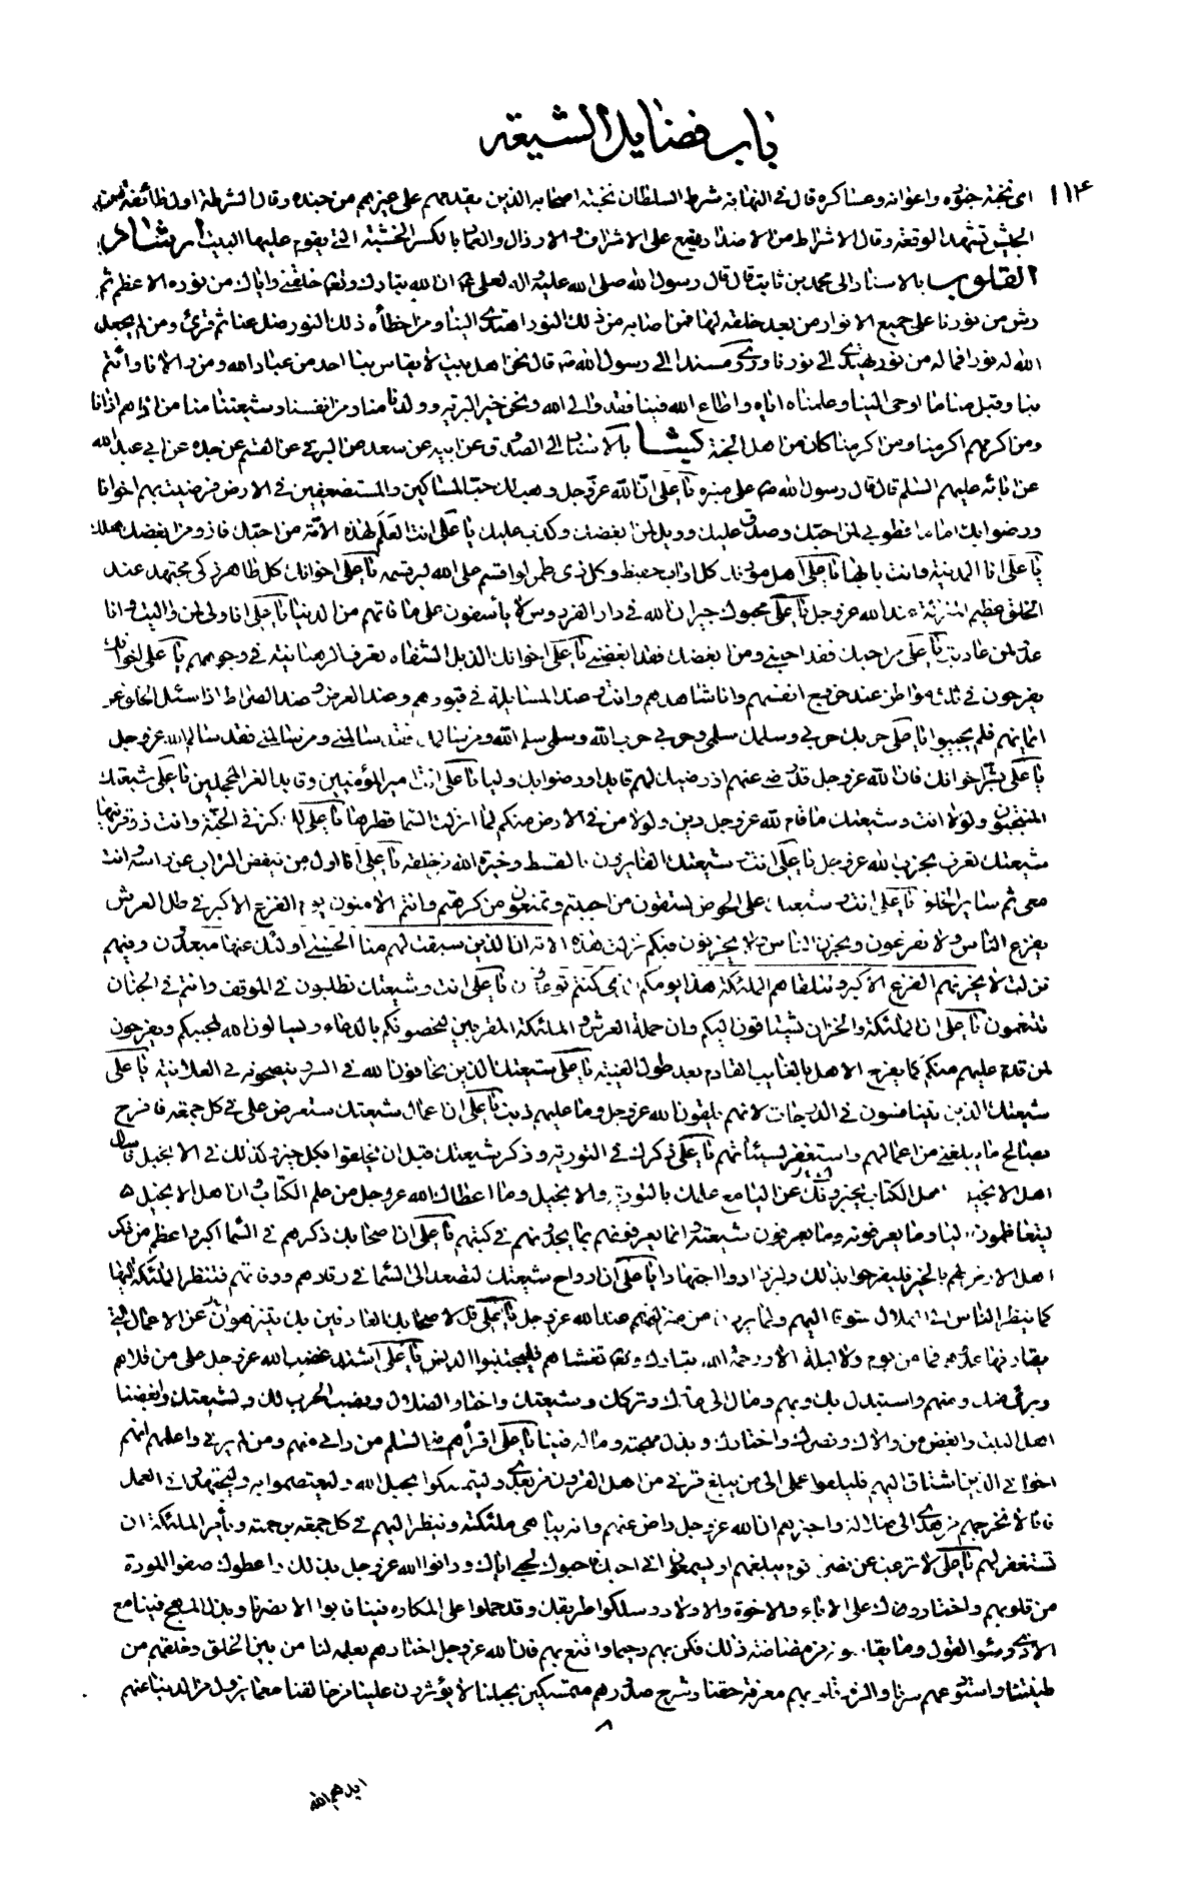 باب فضايل الشيعة
١١٤ اى نخبة جنوده واعوانه وعساكره قال فى النهاية شرط السلطان نخبة اصحابه الذين يقدمهم على غيرهم من جنده وقال الشرطة اول طائفة من
الجيش تشهد الوقعة وقال الاشراط من الاضداد يقع على الاشراف والارذال والعماد بالكسر الخشبة التى يقوم عليها البيت ارشاد
القلوب بالاسناد الى محمد بن ثابت قال قال رسول الله صلى الله عليه واله لعلى ان الله تبارك وتعالى خلقنى واياك من نوره الاعظم ثم
رش من نورنا على جميع الانوار من بعد خلقه لها فمن اصابه من ذلك النور اهتدى الينا ومن اخطأه ذلك النور ضل عنا ثم قرئ ومن لم يجعل
الله له نورا فما له من نور يهتدى الى نورنا وروى مسندا الى رسول الله ص قال نحن اهل بيت لا يقاس بنا احد من عباد الله ومن
ومن اكرمهم اكرمنا ومن اكرمنا كان من اهل الجنة بالاسناد الى الصدوق عن ابيه عن سعد عن البرقى عن القسم عن جده عن ابى عبد الله
عن ابائه عليهم السلم قال قال رسول الله ص على منبره يا على ان الله عز وجل وهب لك حب المساكين والمستضعفين فى الارض فرضيت بهم اخوانا
ورضوا بك اماما فطوبى لمن احبك وصدق عليك وويل لمن ابغضك وكذب عليك يا على انت العلم لهذه الامة من احبك فاز ومن ابغضك هلك
يا على انا المدينة وانت بابها يا على اهل مودتك كل اواب حفيظ وكل ذى طمر لو اقسم على الله لبر قسمه يا على اخوانك كل طاهر زكى مجتهد عند
الخلق عظيم المنزلة عند الله عز وجل يا على محبوك جيران الله فى دار الفردوس لا يأسفون على ما فاتهم من الدنيا يا على انا ولى لمن واليت وانا
عدو لمن عاديت يا على من احبك فقد احبنى ومن ابغضك فقد ابغضنى يا على اخوانك الذبل الشفاه تعرف الرهبانية فى وجوههم يا على اخوانك
يفرحون فى ثلث مواطن عند خروج انفسهم وانا شاهدهم وانت وعند المسائلة فى قبورهم وعند العرض وعند الصراط اذا سئل الخلق عن
ايمانهم فلم يجيبوا يا على حربك حربى وسلمك سلمى وحربى حرب الله وسلمى سلم الله ومن سالمك فقد سالمنى ومن سالمنى فقد سالم الله عز وجل
يا على بشر اخوانك فان الله عز وجل قد رضى عنهم اذ رضيك لهم قايدا ورضوا بك وليا يا على انت امير المؤمنين وقايد الغر المحجلين يا على شيعتك
المنتجبون ولولا انت وشيعتك ما قام لله عز وجل دين ولولا من فى الارض منكم لما انزلت السما قطرها يا على لك كنز فى الجنة وانت ذو قرنيها
شيعتك تعرف بحزب الله عز وجل يا على انت وشيعتك الفايزون بالقسط وخيرة الله من خلقه يا على انا اول من ينفض التراب عن راسه وانت
معى ثم ساير الخلق يا على انت وشيعتك على الحوض تسقون من احببتم وتمنعون من كرهتم وانتم الامنون يوم الفزع الاكبر فى ظل العرش
يفزع الناس ولا تفزعون ويحزن الناس ولا تحزنون فيكم نزلت هذه الاية ان الذين سبقت لهم منا الحسنى اولئك عنها مبعدون وفيهم
نزلت لا يحزنهم الفزع الاكبر وتتلقاهم الملئكة هذا يومكم الذى كنتم توعدون يا على انت وشيعتك تطلبون فى الموقف وانتم فى الجنان
تتنعمون يا على ان الملئكة والخزان يشتاقون اليكم وان حملة العرش والملئكة المقربين ليخصونكم بالدعاء ويسالون الله لمحبيكم ويفرحون
لمن قدم عليهم منكم كما يفرح الاهل بالغايب القادم بعد طول الغيبة يا على شيعتك الذين يخافون الله فى السر وينصحونه فى العلانية يا على
شيعتك الذين يتنافسون فى الدرجات لانهم يلقون الله عز وجل وما عليهم ذنب يا على ان اعمال شيعتك ستعرض على فى كل جمعة فافرح
بصالح ما يبلغنى من اعمالهم واستغفر لسيئاتهم يا على ذكرك فى التورية وذكر شيعتك قبل ان يخلقوا بكل خير وكذلك فى الانجيل فاسأل
اهل الانجيل اهل الكتاب يخبرونك عن اليا مع علمك بالتورية والانجيل وما اعطاك الله عز وجل من علم الكتاب وان اهل الانجيل
ليتعاظمون اليا وما يعرفونه وما يعرفون شيعته وانما يعرفونهم بما يجدونهم فى كتبهم يا على ان اصحابك ذكرهم فى السما اكبر واعظم من ذكر
اهل الارض لهم بالخير فليفرحوا بذلك وليزدادوا اجتهادا يا على ان ارواح شيعتك لتصعد الى السما فى رقادهم ووفاتهم فتنظر الملئكة اليها
كما ينظر الناس الى الهلال شوقا اليهم ولما يرون من منزلتهم عند الله عز وجل يا على قل لاصحابك العارفين بك يتنزهون عن الاعمال التى
يقارفها عدوهم فما من يوم ولا ليلة الا ورحمة الله تبارك وتعالى تغشاهم فليجتنبوا الدنس يا على اشتد غضب الله عز وجل على من قلاهم
وبرئ منك ومنهم واستبدل بك وبهم ومال الى عدوك وتركك وشيعتك واختار الضلال ونصب الحرب لك ولشيعتك وابغضنا
اهل البيت وابغض من والاك ونصرك واختارك وبذل مهجته وماله فينا يا على اقرأهم منى السلم من رانى منهم ومن لم يرنى واعلمهم انهم
اخوانى الذين اشتاق اليهم فليلقوا علمى الى من يبلغ قرنى من اهل القرون من بعدى وليتمسكوا بحبل الله وليعتصموا به وليجتهدوا فى العمل
فانا لا نخرجهم من هدى الى ضلالة واخبرهم ان الله عز وجل راض عنهم وانه يباهى بهم ملئكته وينظر اليهم فى كل جمعة برحمته ويأمر الملئكة ان
تستغفر لهم يا على لا ترغب عن نصر قوم يبلغهم او يسمعون انى احبك فاحبوك لحبى اياك ودانوا الله عز وجل بذلك واعطوك صفو المودة
من قلوبهم واختاروك على الاباء والاخوة والاولاد وسلكوا طريقك وقد حملوا على المكاره فينا فابوا الا نصرنا وبذل المهج فينا مع
الاذى وسوء القول وما يقاسونه من مضاضة ذلك فكن بهم رحيما واقنع بهم فان الله عز وجل اختارهم بعلمه لنا من بين الخلق وخلقهم من
طينتنا واستودعهم سرنا والزم قلوبهم معرفة حقنا وشرح صدورهم متمسكين بحبلنا لا يؤثرون علينا من خالفنا مع ما يزول من الدنيا عنهم
٨
ايدهم الله